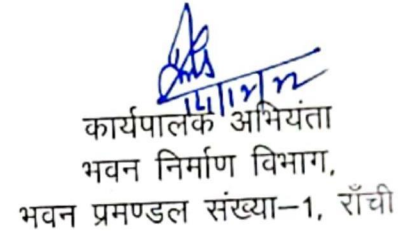 14/12/22
कार्यपालक अभियंता
भवन निर्माण विभाग,
भवन प्रमण्डल संख्या–1, राँची